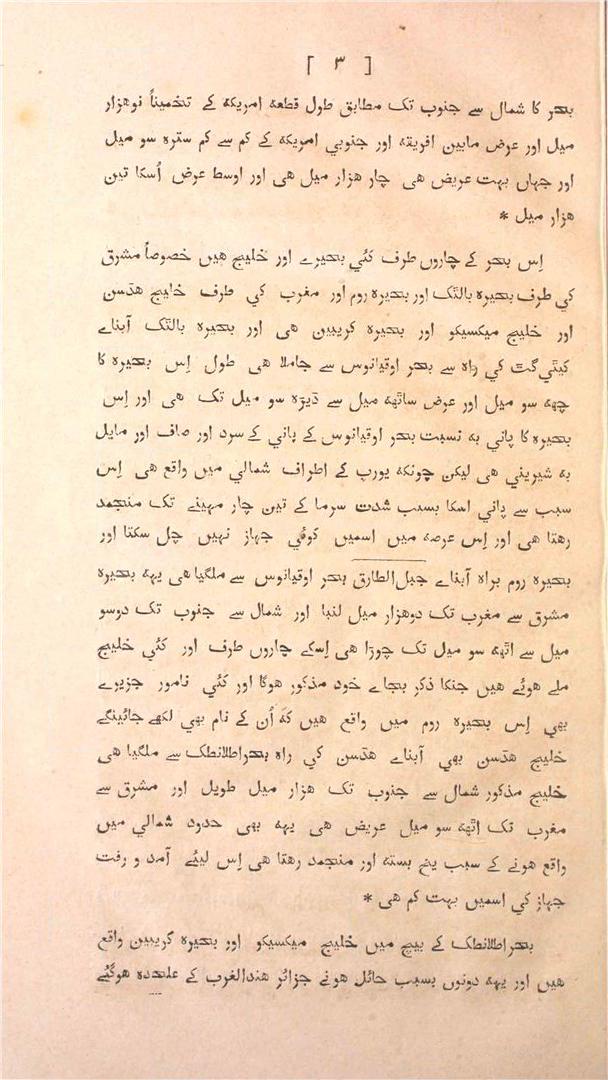 [ ٣ ]
بحر کا شمال سے جنوب تک مطابق طول قطعہ امریکہ کے تخمیناً نوهزار
میل اور عرض مابین افریقہ اور جنوبي امریکہ کے کم سے کم سترہ سو میل
اور جہاں بہت عریض هی چار هزار میل هی اور اوسط عرض اُسکا تین
هزار میل *
اِس بحر کے چاروں طرف کئي بحیرے اور خلیج هیں خصوصاً مشرق
کي طرف بحیرہ بالٹک اور بحیرہ روم اور مغرب کي طرف خلیج هڈسن
اور خلیج میکسیکو اور بحیرہ کریبین هی اور بحیرہ بالٹک آبناے
کیٹي گٹ کي راہ سے بحر اوقیانوس سے جاملا هی طول اِس بحیرہ کا
چھہ سو میل اور عرض ساٹھہ میل سے ڈیڑہ سو میل تک هی اور اِس
بحیرہ کا پاني بہ نسبت بحر اوقیانوس کے پاني کے سرد اور صاف اور مایل
بہ شیریني هی لیکن چونکہ یورپ کے اطراف شمالي میں واقع هی اِس
سبب سے پاني اسکا بسبب شدت سرما کے تین چار مہینے تک منجمد
رهتا هی اور اِس عرصہ میں اسمیں کوئي جہاز نہیں چل سکتا اور
بحیرہ روم براہ آبناے جبل‌الطارق بحر اوقیانوس سے ملگیا هی یہہ بحیرہ
مشرق سے مغرب تک دوهزار میل لنبا اور شمال سے جنوب تک دوسو
میل سے اٹھہ سو میل تک چوڑا هی اِسکے چاروں طرف اور کئي خلیج
ملے هوئے هیں جنکا ذکر بجاے خود مذکور هوگا اور کئي نامور جزیرے
بھي اِس بحیرہ روم میں واقع هیں کہ اُن کے نام بھي لکھے جائینگے
خلیج هڈسن بھي آبناے هڈسن کي راہ بحراطلانطک سے ملگیا هی
خلیج مذکور شمال سے جنوب تک هزار میل طویل اور مشرق سے
مغرب تک اٹھہ سو میل عریض هی یہہ بھي حدود شمالي میں
واقع هونے کے سبب یخ بستہ اور منجمد رهتا هی اِس لیئے آمد و رفت
جہاز کي اسمیں بہت کم هی *
بحراطلانطک کے بیچ میں خلیج میکسیکو اور بحیرہ کریبین واقع
هیں اور یہہ دونوں بسبب حائل هونے جزائر هندالغرب کے علحدہ هوگئے